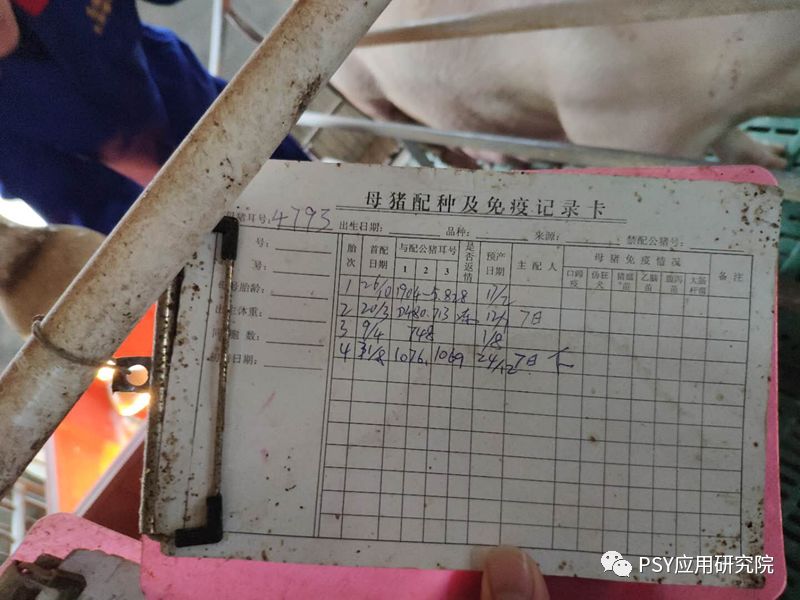 母猪配种及免疫记录卡
母猪耳号: 4793 出生日期: 品种: 来源: 禁配公猪号:
号:
号:
胎龄:
体重:
数:
日期:
胎次 首配日期 与配公猪耳号 是否返情 预产日期 主配人 母猪免疫情况 备注
1 2 3 口蹄疫 伪狂犬 猪瘟苗 乙脑苗
1 26/10 1904 5.828 17/2
2 20/3 0480.713 12/7 7日
3 9/4 748 1/8
4 31/8 1076.1069 24/12 7日
PSY应用研究院